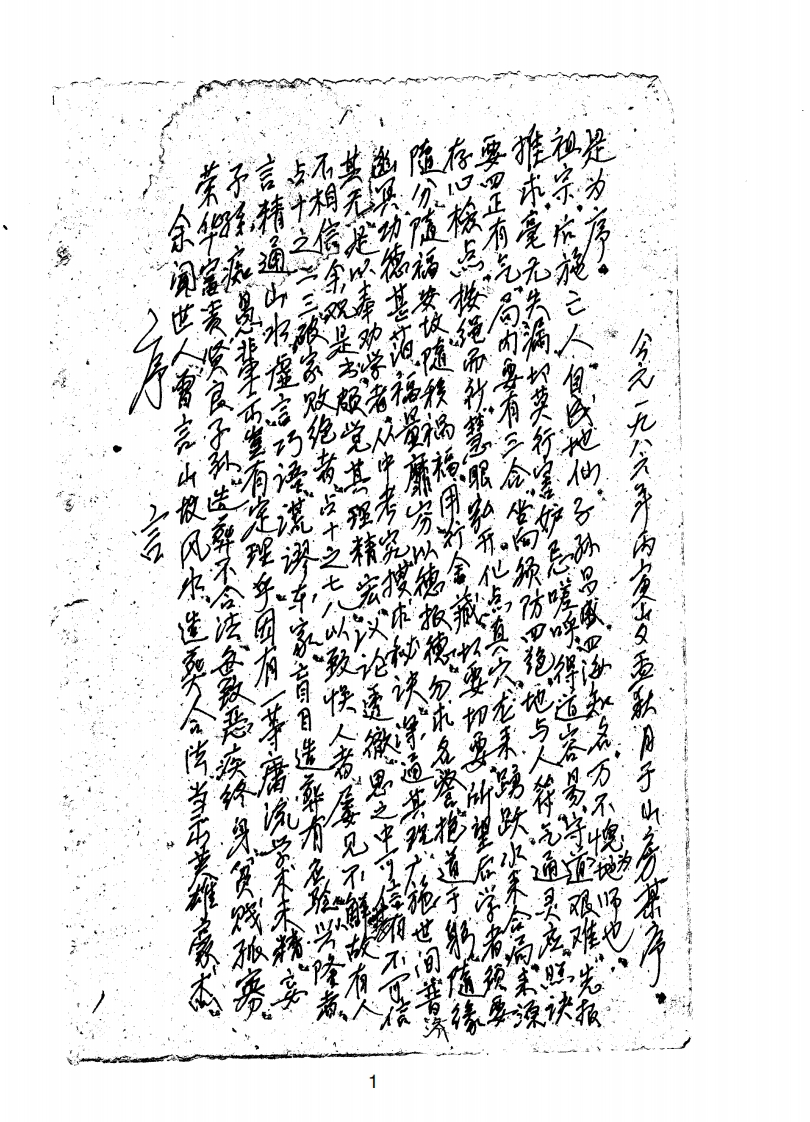 序言
余闻世人曾言山坟风水造葬合法当出英雄豪杰
荣华富贵贤良子孙造葬不合法每致恶疾终身贫贱孤寡
子孙痴愚辈出岂有定理乎因有一等庸流学术未精妄
言精通山水虚言巧语谎谬东家盲目造葬有应验兴隆者
占十之二三破家败绝者占十之七八以致悮人者屡见不鲜故有人
不相信余观是书颇觉其理精宏议论透彻思之中可信有不可信
其无是以奉劝学者从中考究搜求秘诀深通其理广施世间普济
幽冥功德甚沛福量靡穷以德报德勿求名誉抱道于躬随缘
随分随福安坟随移祸福用行舍藏切要切要所望后学者须要
存心检点按绳而针慧眼弘开化点真穴龙来踴跃水来合局来源
要四正有气局内要有三合坐向须防四绝地与人符气通灵应照诀
推求毫无失漏切莫行害妒忌嗟呼得道容易守道艰难先报
祖宗后施亡人自成地仙子孙昌盛四海知名万不愧为地师也
是为序。
今元一九八六年丙寅岁孟秋月于山房某序
1